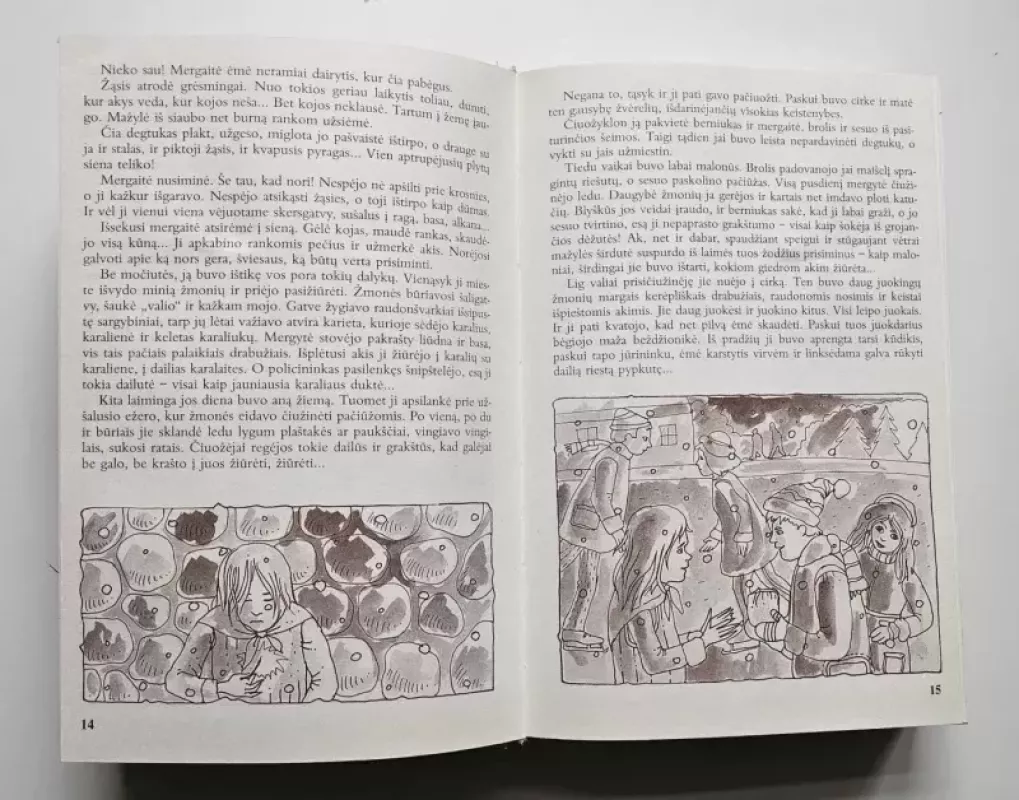 Nieko sau! Mergaitė ėmė neramiai dairytis, kur čia pabėgus.
Žąsis atrodė grėsmingai. Nuo tokios geriau laikytis toliau, dumti,
kur akys veda, kur kojos neša... Bet kojos neklausė. Tartum į žemę įau-
go. Mažylė iš siaubo net burną rankom užsiėmė.
Čia degtukas plakt, užgeso, miglota jo pašvaistė ištirpo, o drauge su
ja ir stalas, ir piktoji žąsis, ir kvapusis pyragas... Vien aptrupėjusių plytų
siena teliko!
Mergaitė nusiminė. Še tau, kad nori! Nespėjo nė apšilti prie krosnies,
o ji kažkur išgaravo. Nespėjo atsikąsti žąsies, o toji ištirpo kaip dūmas.
Ir vėl ji vienui viena vėjuotame skersgatvy, sušalus į ragą, basa, alkana...
Išsekusi mergaitė atsirėmė į sieną. Gėlė kojas, maudė rankas, skaudė-
jo visą kūną... Ji apkabino rankomis pečius ir užmerkė akis. Norėjosi
galvoti apie ką nors gera, šviesaus, ką būtų verta prisiminti.
Be močiutės, ją buvo ištikę vos pora tokių dalykų. Vienąsyk ji mies-
te išvydo minią žmonių ir priėjo pasižiūrėti. Žmonės būriavosi šaligat-
vy, šaukė „valio" ir kažkam mojo. Gatve žygiavo raudonšvarkiai išsipus-
tę sargybiniai, tarp jų lėtai važiavo atvira karieta, kurioje sėdėjo karalius,
karalienė ir keletas karaliukų. Mergytė stovėjo pakrašty liūdna ir basa,
vis tais pačiais palaikiais drabužiais. Išplėtusi akis ji žiūrėjo į karalių su
karaliene, į dailias karalaites. O policininkas pasilenkęs šnipštelėjo, esą ji
tokia dailutė – visai kaip jauniausia karaliaus duktė...
Kita laiminga jos diena buvo aną žiemą. Tuomet ji apsilankė prie už-
šalusio ežero, kur žmonės eidavo čiužinėti pačiūžomis. Po vieną, po du
ir būriais jie sklandė ledu lygum plaštakės ar paukščiai, vingiavo vingi-
lais, sukosi ratais. Čiuožėjai regėjos tokie dailūs ir grakštūs, kad galėjai
be galo, be krašto į juos žiūrėti, žiūrėti...
14
Negana to, tąsyk ir ji pati gavo pačiuožti. Paskui buvo cirke ir matė
ten gausybę žvėrelių, išdarinėjančių visokias keistenybes.
Čiuožyklon ją pakvietė berniukas ir mergaitė, brolis ir sesuo iš pasi-
turinčios šeimos. Taigi tądien jai buvo leista nepardavinėti degtukų, o
vykti su jais užmiestin.
Tiedu vaikai buvo labai malonūs. Brolis padovanojo jai maišelį spra-
gintų riešutų, o sesuo paskolino pačiūžas. Visą pusdienį mergytė čiuži-
nėjo ledu. Daugybė žmonių ja gerėjos ir kartais net imdavo ploti katu-
čių. Blyškūs jos veidai įraudo, ir berniukas sakė, kad ji labai graži, o jo
sesuo tvirtino, esą ji nepaprasto grakštumo – visai kaip šokėja iš grojan-
čios dėžutės! Ak, net ir dabar, spaudžiant speigui ir stūgaujant vėtrai
mažylės širdutė suspurdo iš laimės tuos žodžius prisiminus – kaip malo-
niai, širdingai jie buvo ištarti, kokiom giedrom akim žiūrėta...
Lig valiai prisičiužinėję jie nuėjo į cirką. Ten buvo daug juokingų
žmonių margais kerėpliškais drabužiais, raudonomis nosimis ir keistai
išpieštomis akimis. Jie daug juokėsi ir juokino kitus. Visi leipo juokais.
Ir ji pati kvatojo, kad net pilvą ėmė skaudėti. Paskui tuos juokdarius
bėgiojo maža beždžionikė. Iš pradžių ji buvo aprengta tarsi kūdikis,
paskui tapo jūrininku, ėmė karstytis virvėm ir linksėdama galva rūkyti
dailią riestą pypkutę...
15